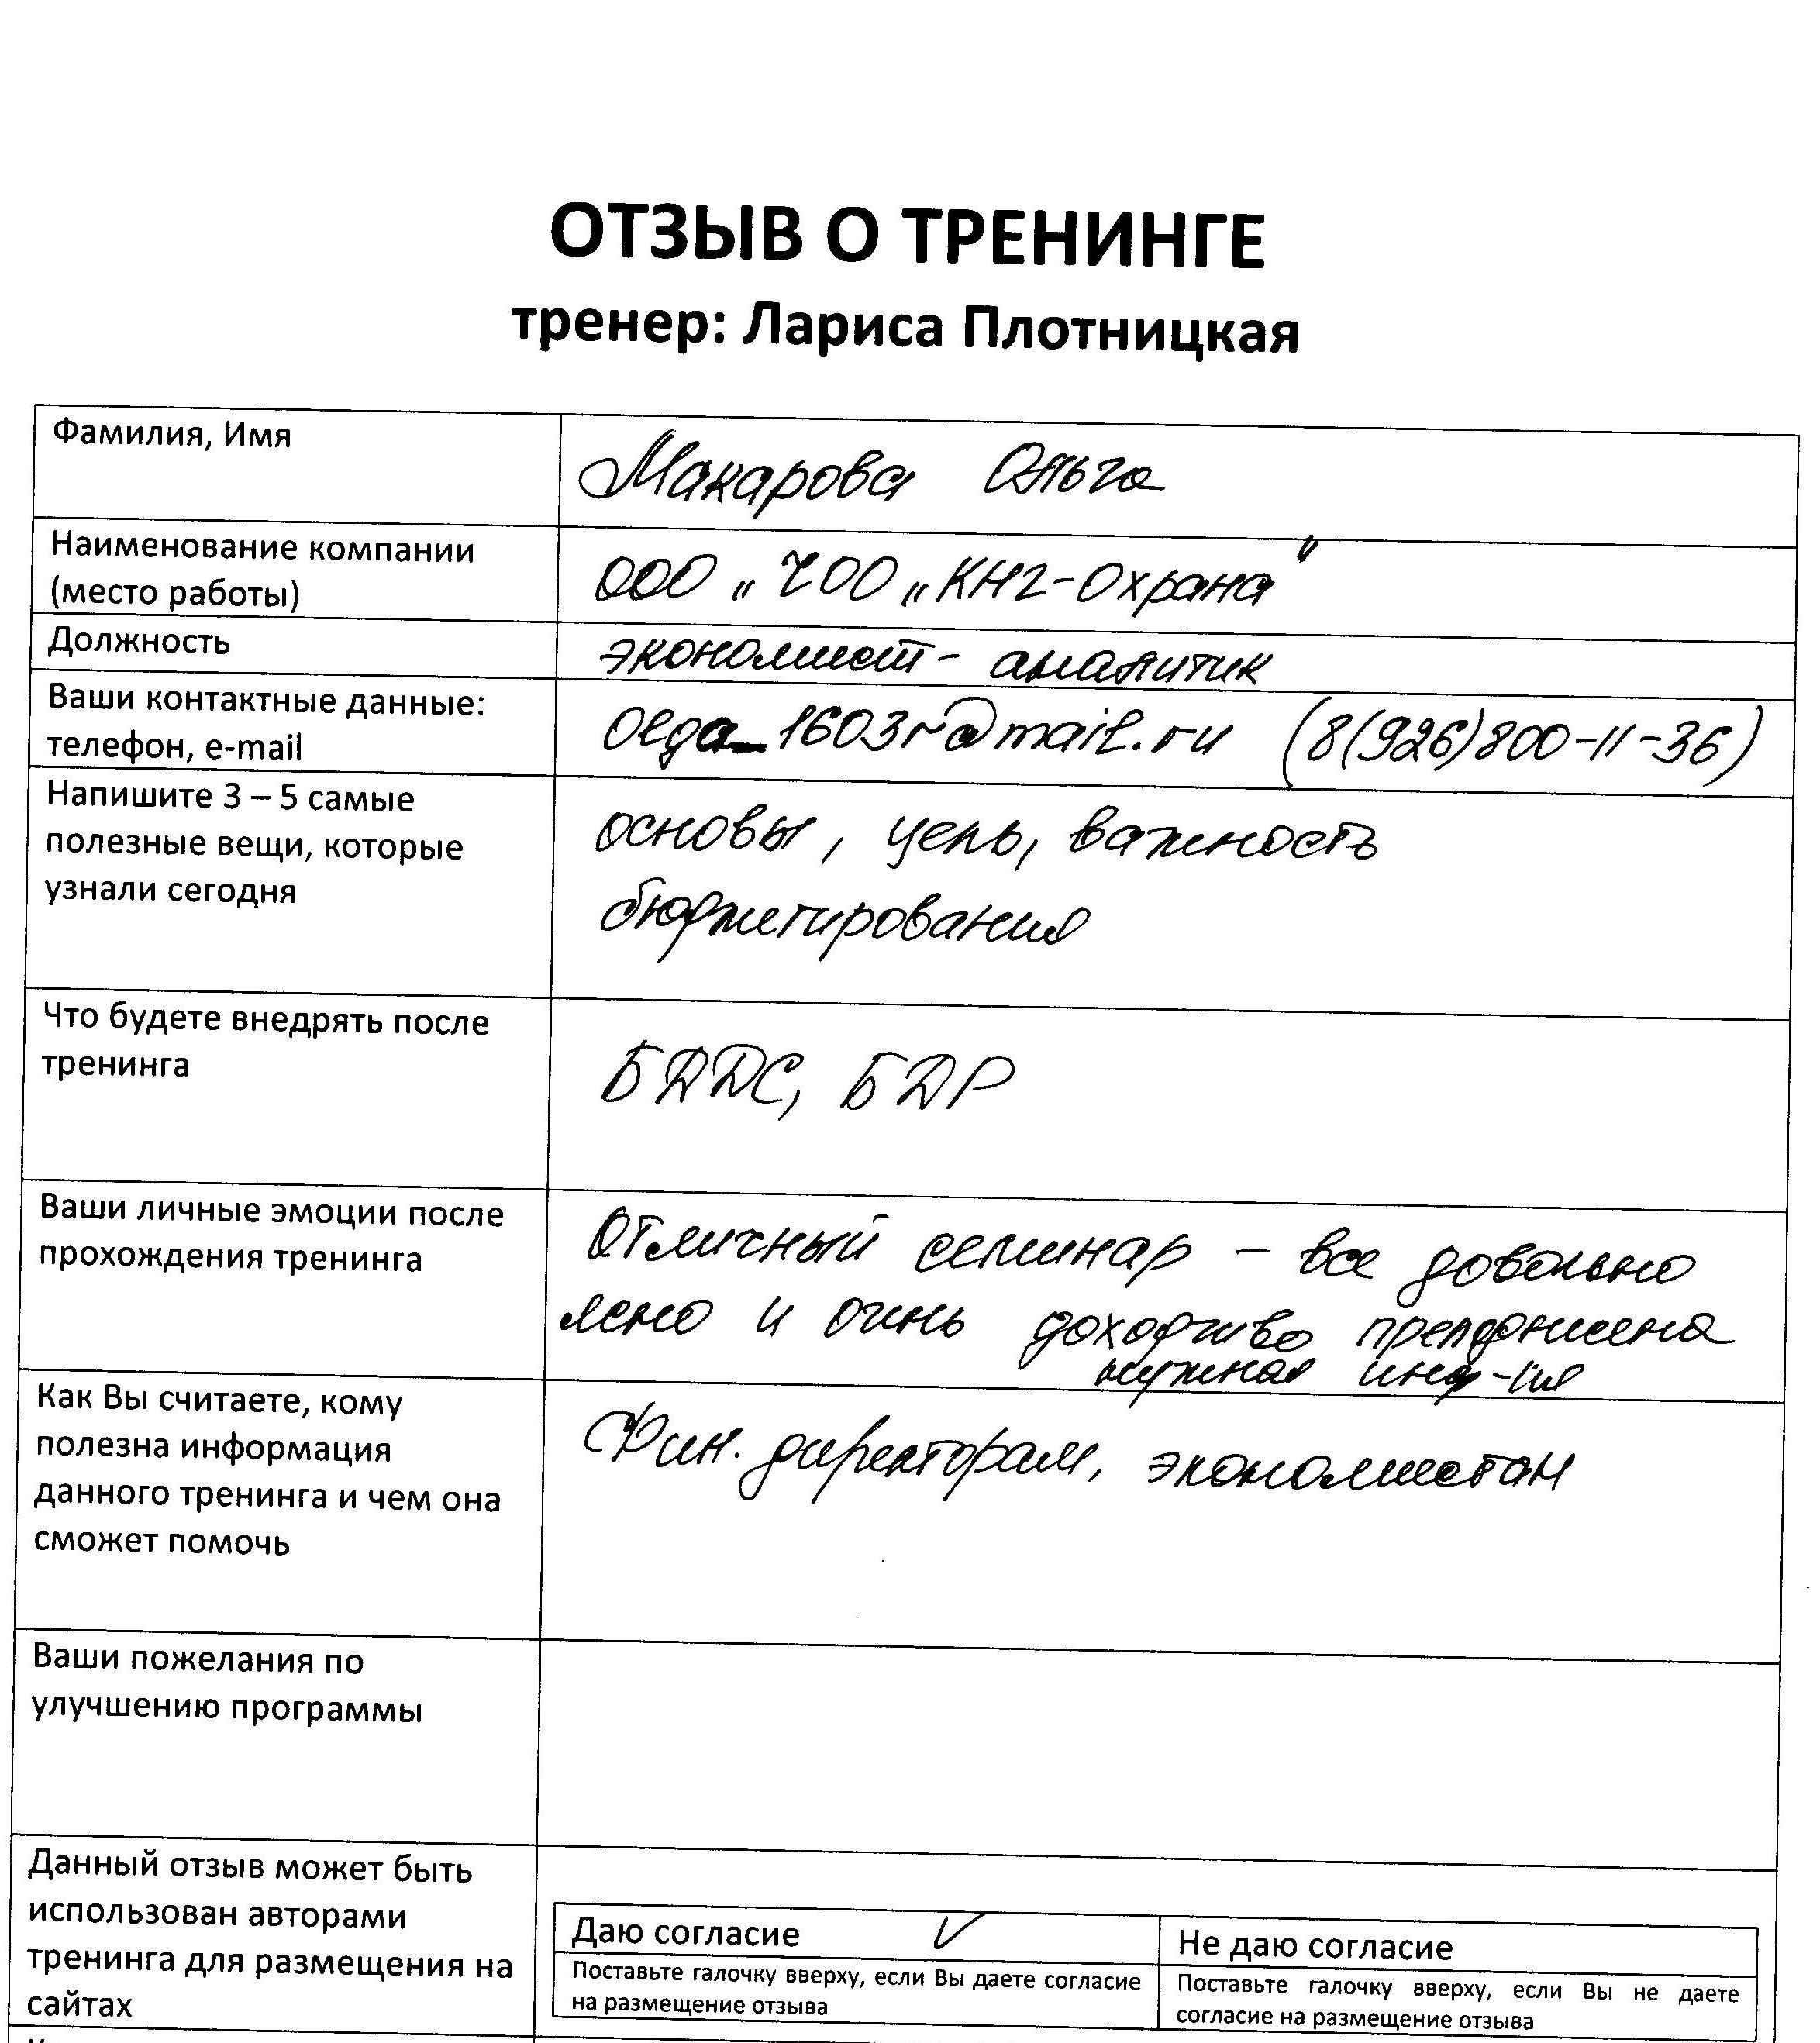 ОТЗЫВ О ТРЕНИНГЕ
тренер: Лариса Плотницкая
Фамилия, Имя
Макарова Ольга
Наименование компании
(место работы)
ООО „ЧОО „КН2-Охрана"
Должность
экономист - аналитик
Ваши контактные данные:
телефон, e-mail
olga_1603r@mail.ru (8(926)800-11-36)
Напишите 3 – 5 самые
полезные вещи, которые
узнали сегодня
основы, цель, важность
бюджетирования
Что будете внедрять после
тренинга
БДДС, БДР
Ваши личные эмоции после
прохождения тренинга
Отличный семинар – все довольно
ясно и очень доходчиво преподнесена
нужная инф-ия
Как Вы считаете, кому
полезна информация
данного тренинга и чем она
сможет помочь
Фин. директорам, экономистам
Ваши пожелания по
улучшению программы
Данный отзыв может быть
использован авторами
тренинга для размещения на
сайтах
Даю согласие ✓
Поставьте галочку вверху, если Вы даете согласие
на размещение отзыва
Не даю согласие
Поставьте галочку вверху, если Вы не даете
согласие на размещение отзыва